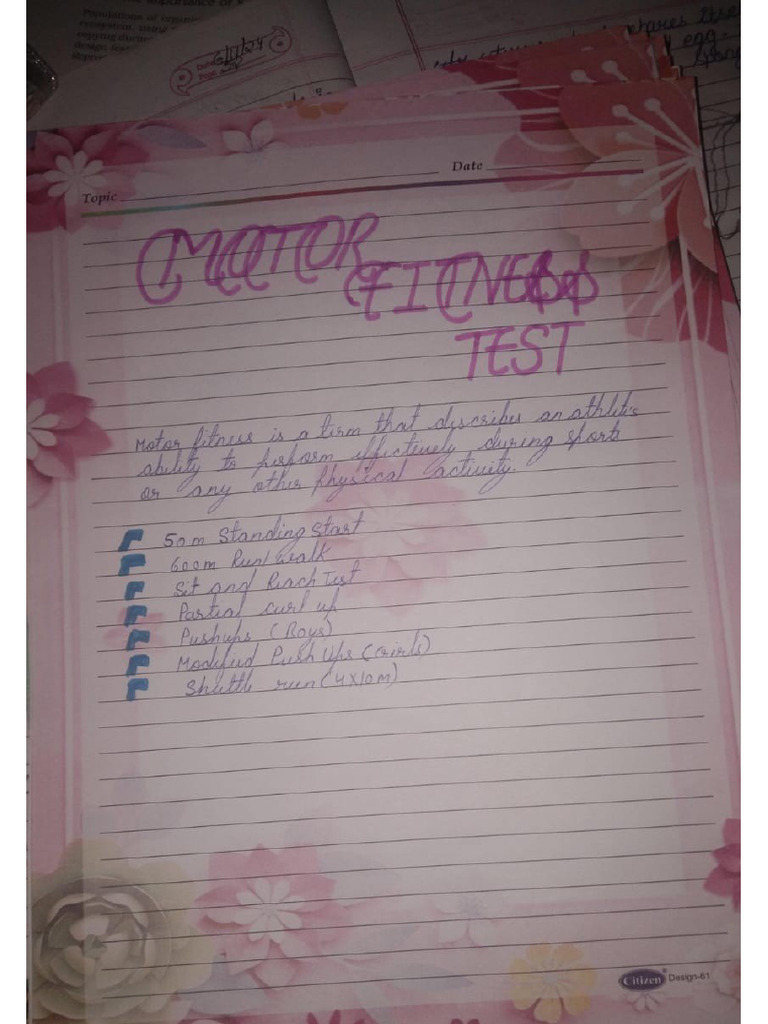 importance of
Populations of organ
ecosystem, using
Date
Topic
MOTOR
FITNESS
TEST
Motor fitness is a tirm that discribes an athletic
ability to perform effectively during sports
or any other physical activity.
50m Standing Start
600m Run/walk
Sit and Reach Test
Partial curl up
Pushups (Boys)
Modified Push Ups (Girls)
Shuttle run (4x10M)
Citizen Design-61